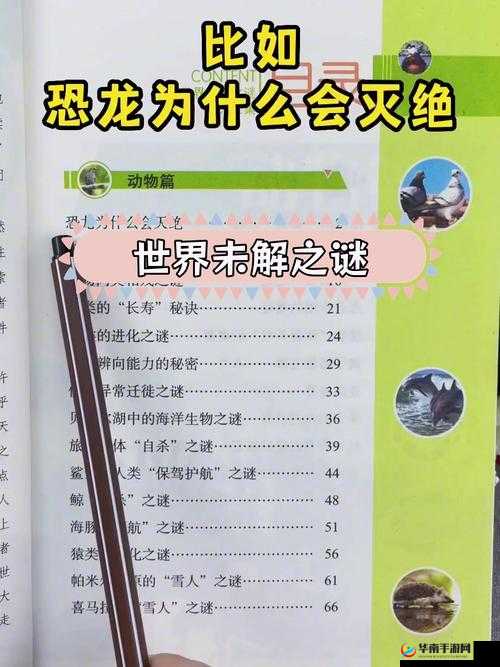 比如
CONTENT
目录
恐龙为什么会灭绝
动物篇
恐龙为什么会灭绝 2
世界未解之谜
类的“长寿”秘诀 21
的进化之谜 24
辨向能力的秘密 29
异常迁徙之谜 33
湖中的海洋生物之谜 36
旅 体“自杀”之谜 39
鲨 人类“保驾护航”之谜 44
鲸 杀”之谜 48
海豚 航”之谜 51
猿类 化之谜 56
帕米 原的“雪人”之谜 61
喜马拉 “雪人”之谜 66
华南手游网